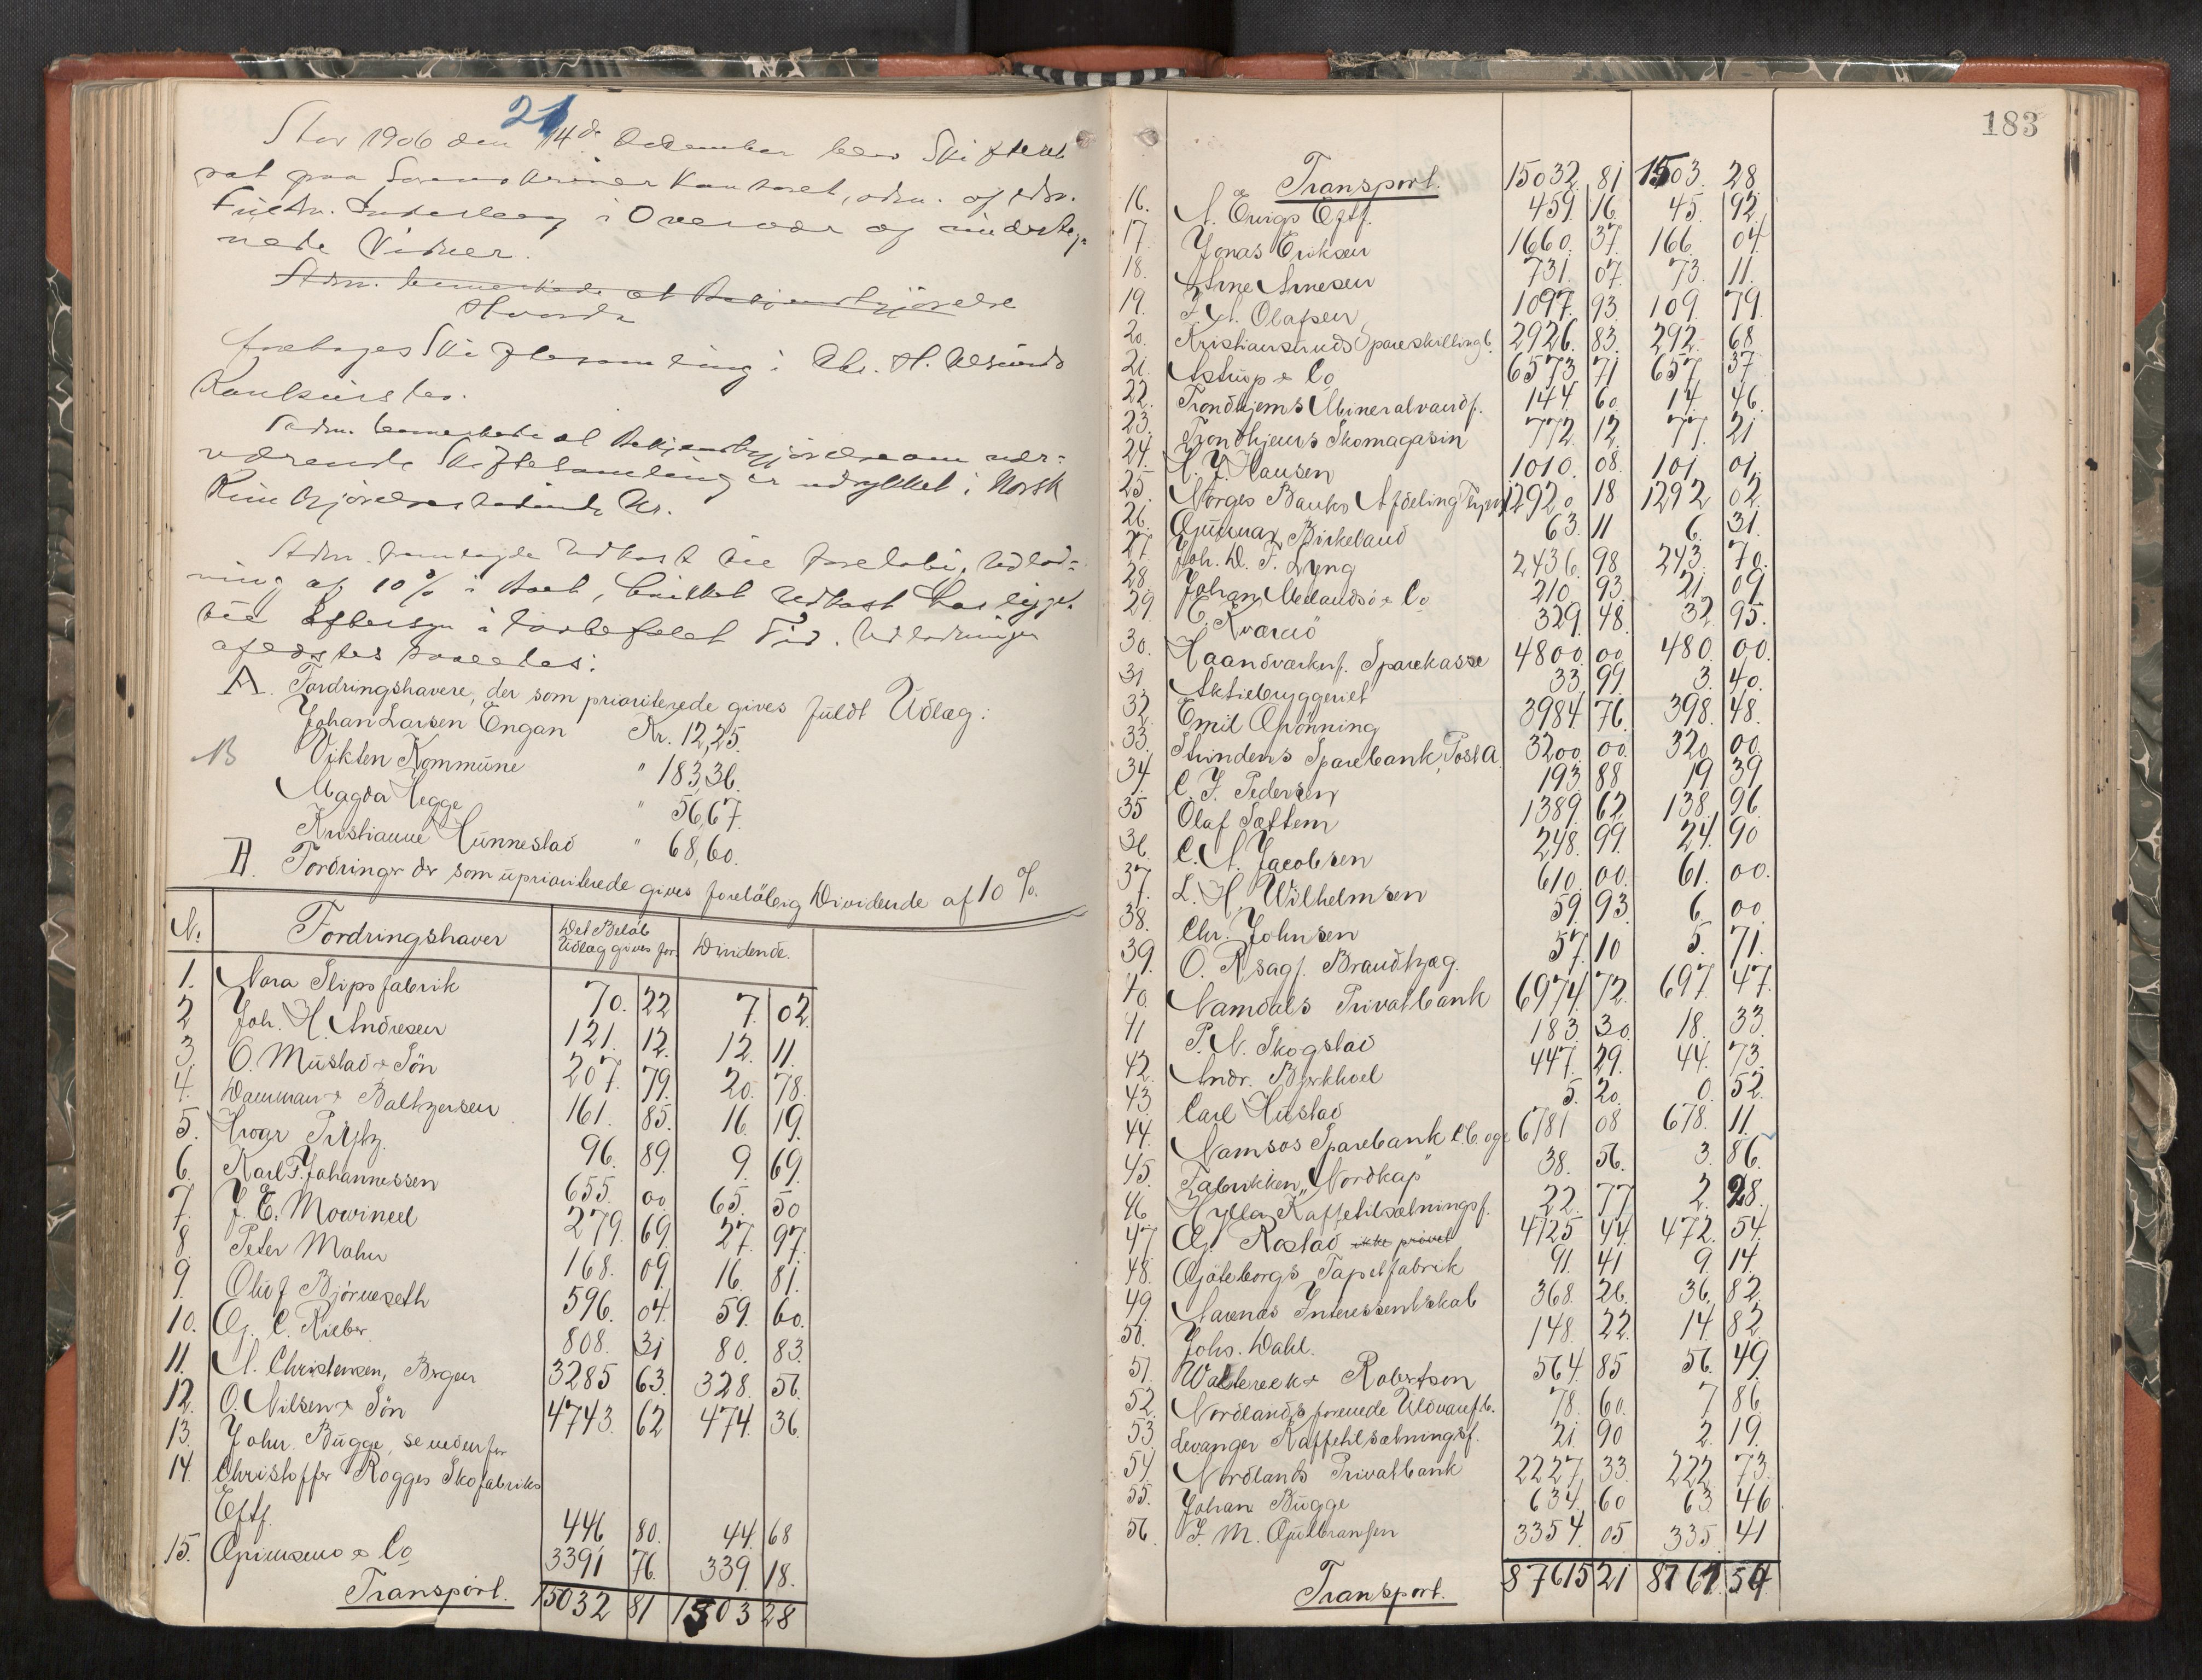 21
Aar 1906 den 14de December blev Skifteret
sat paa Sorenskriverkontoret, adm. af edsv.
Fuldm. i Overvær af underteg-
nede Vidner.
Adm. bemerkede at Bekjendtgjørelse
Hvorda
foretages Skiftesamling i Chr. H. Alsunds
Konkursbo.
Adm. bemerkede at Bekjendtgjørelse om nær-
værende Skiftesamling er indrykket i Norsk
Kundgjørelsestidende Nr.
Adm. fremlagde Udkast til foreløbig Udlod-
ning af 10 % i Boet, hvilket Udkast har ligget
til Eftersyn i lovbefalet Tid. Udlodningen
afsluttes saaledes:
A. Fordringshavere, der som prioriterede gives fuldt Udlæg:
Johan Larsen Engan Kr. 12,25.
Vikten Kommune " 183,36.
Magda Hegge " 56,67.
Kristianne Hunnestad " 68,60.
B. Fordringer der som uprioriterede gives foreløbig Dividende af 10 %.
N. Fordringshaver Det Beløb Udlæg gives for Dividende.
1. Nora Slipsfabrik 70. 22 7. 02.
2 Joh. H. Andresen 121. 12. 12. 11.
3. O. Mustad & Søn 207. 79. 20. 78.
4. Damman & Baltzersen 161. 85. 16. 19.
5. Hroar Prytz. 96. 89. 9. 69.
6. Karl F. Johannessen 655. 00 65. 50
7. J. E. Mowinckel 279. 69. 27. 97.
8. Peter Mahn 168. 09. 16. 81.
9. Oluf Bjørneseth 596. 04. 59. 60.
10. G. C. Rieber. 808. 31 80. 83.
11. N. Christensen, Bergen 3285 63. 328. 56.
12. O. Nilsen & Søn 4743. 62 474. 36.
13. John. Bugge, se nedenfor
14. Christoffer Rogges Skofabriks
Eftf. 446 80. 44. 68
15. Grimseno & Co 3391 76. 339. 18.
Transport. 15032 81 1503 28
183
Transport. 15032. 81 1503. 28.
16. N. Ervigs Eftf. 459. 16. 45. 92.
17. Jonas Eriksen 1660. 37. 166. 04.
18. Arne Arnesen 731. 07. 73. 11.
19. J. A. Olafsen 1097. 93. 109. 79.
20. Kristiansunds Spareskillingsb. 2926. 83. 292. 68
21. Astrup & Co 6573 71 657. 37
22. Trondhjems Mineralvandf. 144. 60. 14. 46.
23. Trondhjems Skomagasin 772. 12. 77. 21
24. H. J. Hansen 1010. 08. 101. 01.
25. Norges Banks Afdeling Thjem 12920 18 1292 02.
26. Gunnar Birkeland 63. 11 6. 31.
27. Joh. D. F. Lyng 2436. 98. 243. 70.
28. Johan Melandsø & Co 210. 93. 21. 09.
29. E. Kvarnø 329. 48. 32. 95.
30. Haandværkerf. Sparekasse 4800. 00 480. 00.
31 Aktiebryggeriet 33. 99. 3. 40.
32. Emil Grønning 3984. 76. 398. 48.
33. Strindens Sparebank, Post A 3200. 00. 320. 00.
34. C. J. Pedersen 193. 88 19. 39.
35 Olaf Sættem 1389. 62. 138. 96.
36. C. N. Jacobsen 248. 99. 24. 90
37. L. H. Wilhelmsen 610. 00. 61. 00.
38. Chr. Johnsen 59. 93. 6. 00
39. O. Rsagf. Brandtzæg. 57. 10 5. 71.
40. Namdals Privatbank 6974. 72. 697. 47.
41 P. N. Skogstad 183. 30. 18. 33.
42. Andr. Bjerkhoel 447. 29. 44. 73.
43 Carl Hustad 5. 20. 0. 52.
44. Namsos Sparebank L.b. og c 6781 08 678. 11.
45. Fabrikken „Nordkap" 38. 56. 3. 86.
46 Hylla Kaffetilsætningsf. 22. 77 2. 28.
47 G. Rostad ikke prøvet 4725 44. 472. 54.
48. Gøteborgs Tapetfabrik 91. 41 9. 14.
49. Aarenæs Interessentskab 368. 26. 36. 82.
50. Johs. Dahl. 148. 22. 14. 82.
51. Wallereck & Robertson 564. 85 56. 49
52. Nordlands forenede Uldvarefb. 78. 60. 7 86
53. Levanger Kaffetilsætningsf. 21. 90 2. 19.
54. Nordlands Privatbank 2227. 33. 222. 73.
55. Johan Bugge 634. 60 63. 46.
56. J. M. Gulbransen 3354. 05 335. 41
Transport. 87615 21 8761. 54